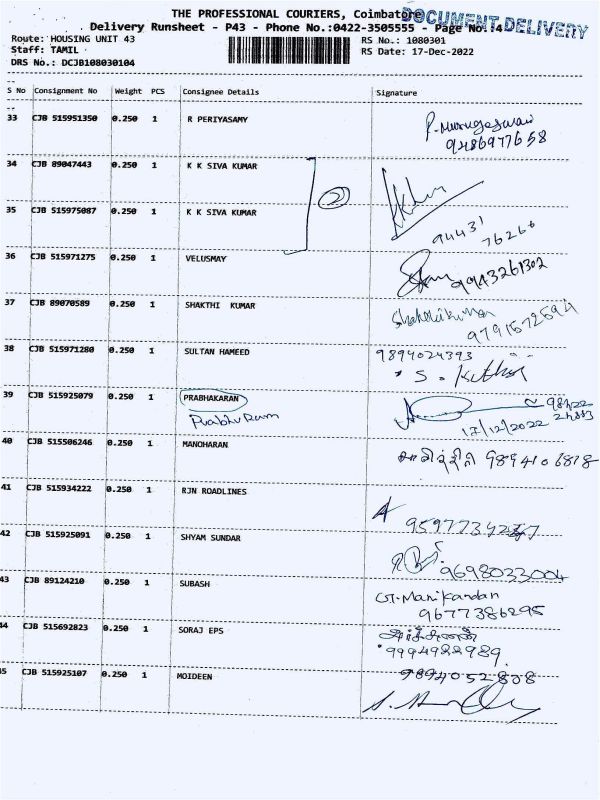 THE PROFESSIONAL COURIERS, Coimbatore
DOCUMENT DELIVERY
Delivery Runsheet - P43 - Phone No.:0422-3505555 - Page No.:4
Route: HOUSING UNIT 43
RS No.: 1080301
Staff: TAMIL
RS Date: 17-Dec-2022
DRS No.: DCJB108030104
S No Consignment No Weight PCS Consignee Details Signature
33 CJB 515951350 0.250 1 R PERIYASAMY
P. Murugeswari
9486977658
34 CJB 89047443 0.250 1 K K SIVA KUMAR
2
35 CJB 515975087 0.250 1 K K SIVA KUMAR
94431
76266
36 CJB 515971275 0.250 1 VELUSMAY
9943261302
37 CJB 89070589 0.250 1 SHAKTHI KUMAR
Shakthikumar
9791572594
38 CJB 515971280 0.250 1 SULTAN HAMEED
9894024393
39 CJB 515925079 0.250 1 PRABHAKARAN
Prabhu Ram
17/12/2022
40 CJB 515506246 0.250 1 MANOHARAN
9894106818
41 CJB 515934222 0.250 1 RJN ROADLINES
42 CJB 515925091 0.250 1 SHYAM SUNDAR
9698033004
43 CJB 89124210 0.250 1 SUBASH
G.T. Manikandan
9677386295
44 CJB 515692823 0.250 1 SORAJ EPS
9994988989
45 CJB 515925107 0.250 1 MOIDEEN
9894052808